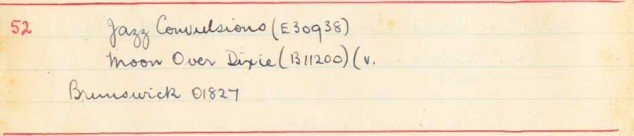 52 Jazz Convulsions (E30938)
Moon Over Dixie (B11200) (v.
Brunswick 01827